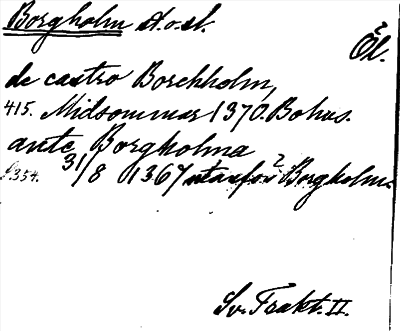 Borgholm st. o. sl.
Öl.
de castro Borchholm,
415. Midsommar 1370. Bohus.
ante Borgholma
s. 354. 31/8 1367 utanfor Borgholm.
Sv. Trakt. II.